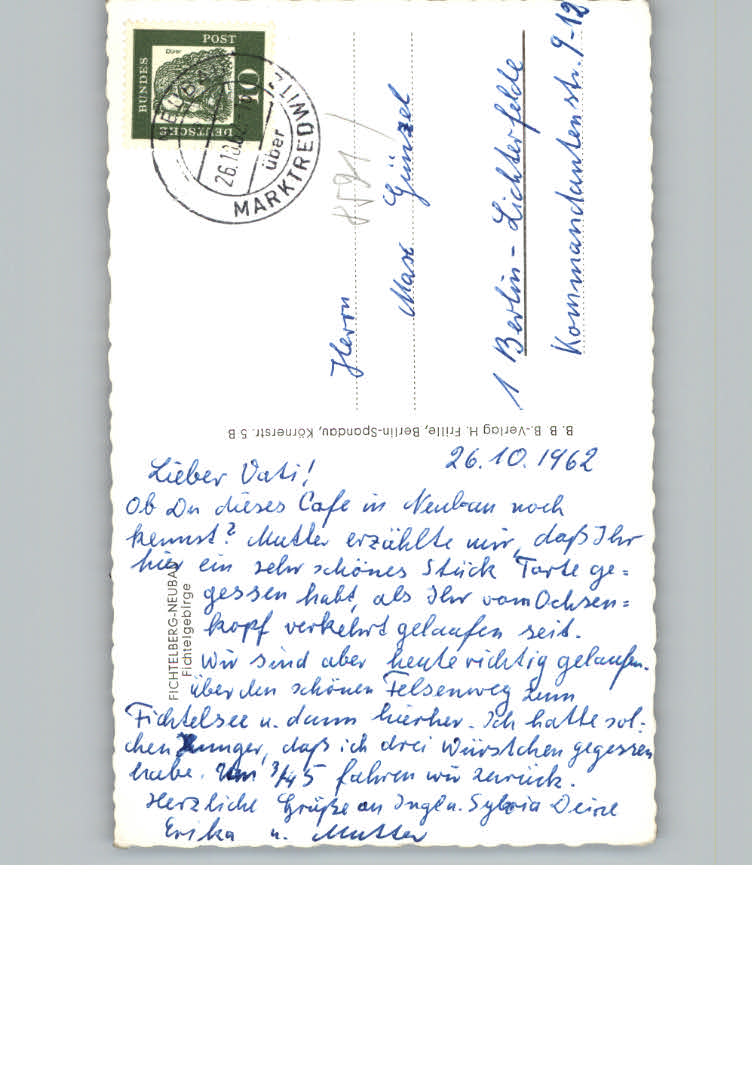 DEUTSCHE
BUNDES
POST
10
Dürer
26.10.62
über
MARKTREDWITZ
8591
Herrn
Max Günzel
1 Berlin-Lichterfelde
Kommandantenstr. 9-12
B. B. B.-Verlag H. Frille, Berlin-Spandau, Körnerstr. 5 B
26.10.1962
Lieber Vati!
Ob Du dieses Cafe in Neubau noch
kennst? Mutter erzählte mir, daß Ihr
hier ein sehr schönes Stück Torte ge=
gessen habt, als Ihr vom Ochsen=
kopf verkehrt gelaufen seid.
Wir sind aber heute richtig gelaufen.
über den schönen Felsenweg zum
Fichtelsee u. dann hierher. Ich hatte sol-
chen Hunger, daß ich drei Würstchen gegessen
habe. Um 3/45 fahren wir zurück.
Herzliche Grüße an Inge u. Sylvia Deine
Erika u. Mutter
FICHTELBERG-NEUBAU
Fichtelgebirge